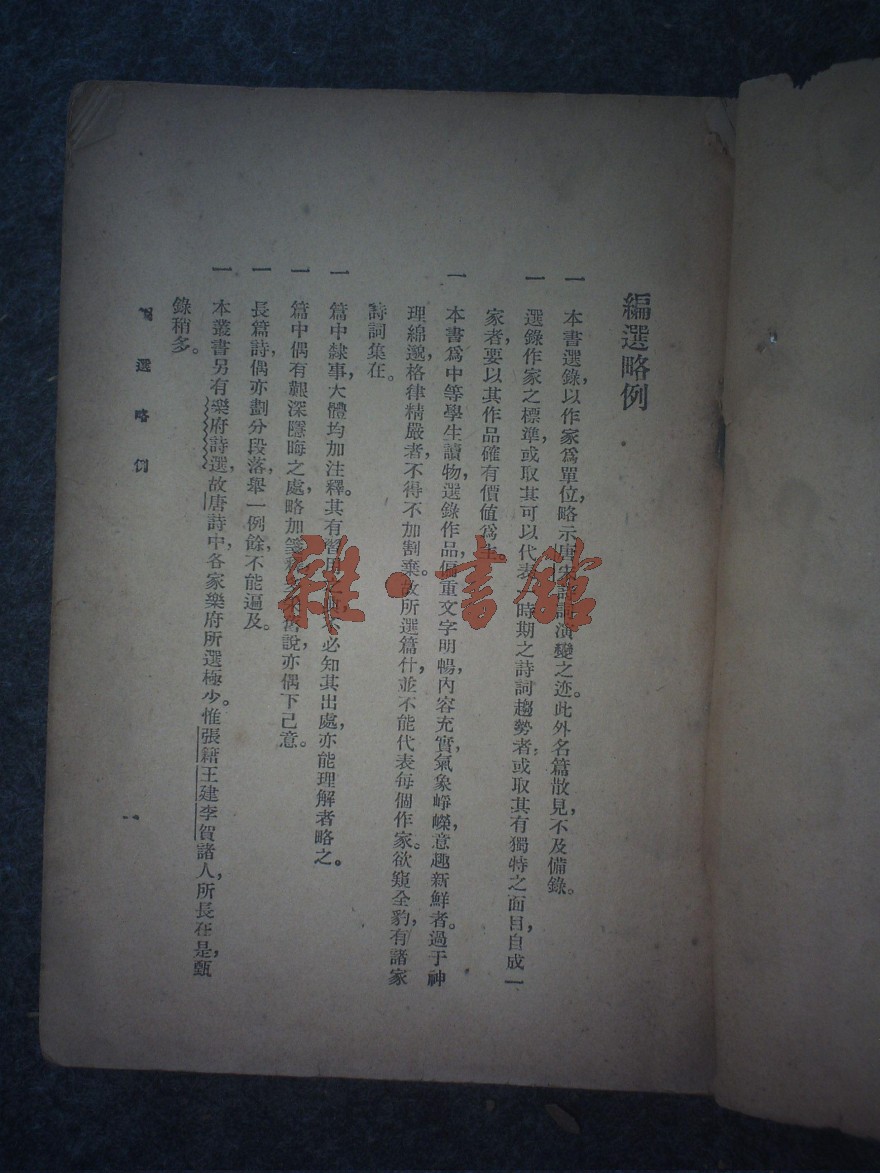 編選略例
一　本書選錄，以作家爲單位，略示唐宋詩詞演變之迹。此外名篇散見，不及備錄。
一　選錄作家之標準，或取其可以代表時期之詩詞趨勢者，或取其有獨特之面目，自成一
家者，要以其作品確有價值爲主。
一　本書爲中等學生讀物，選錄作品，偏重文字明暢，內容充實，氣象崢嶸，意趣新鮮者。過于神
理綿邈，格律精嚴者，不得不加割棄。故所選篇什，並不能代表每個作家。欲窺全豹，有諸家
詩詞集在。
一　篇中隸事，大體均加注釋。其有習用必知其出處，亦能理解者略之。
一　篇中偶有艱深隱晦之處，略加箋舊說，亦偶下己意。
一　長篇詩，偶亦劃分段落，舉一例餘，不能遍及。
一　本叢書另有樂府詩選，故唐詩中各家樂府所選極少。惟張籍王建李賀諸人，所長在是，甄
錄稍多。
編選略例
一
雜·書館